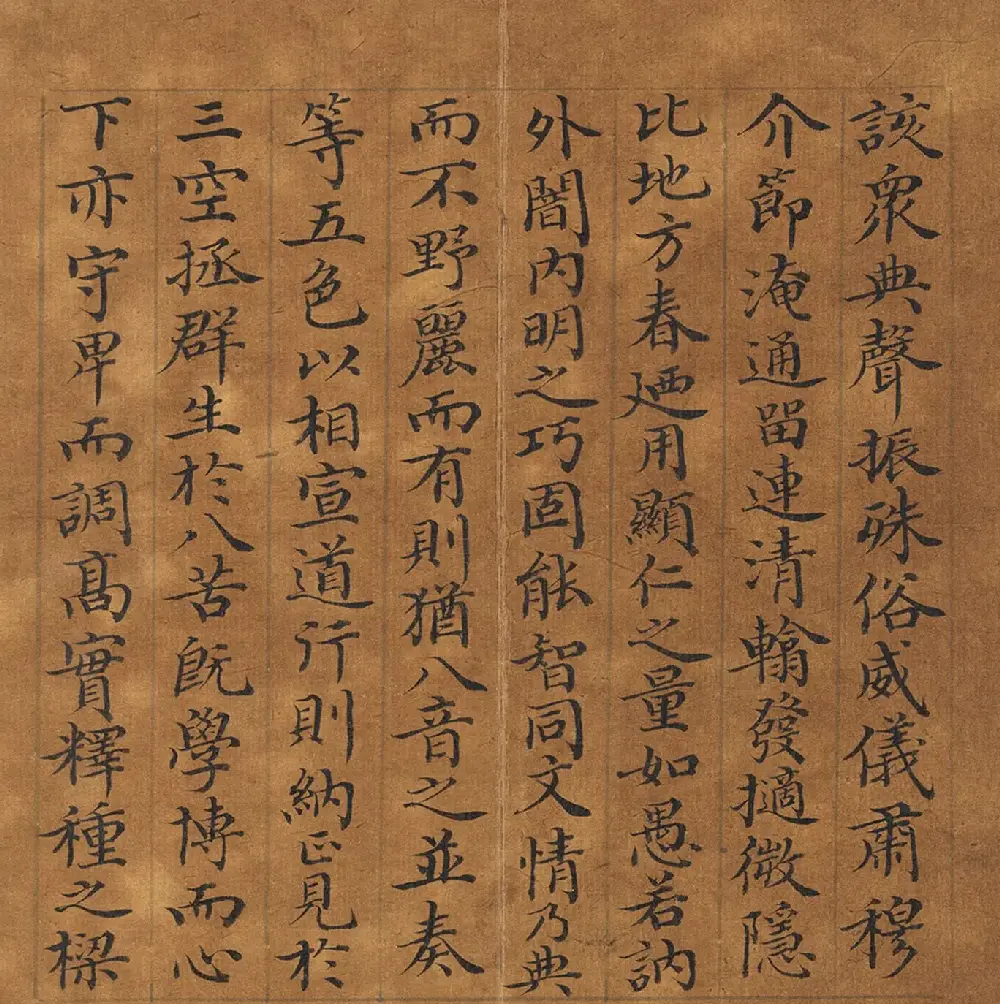 該衆典聲振殊俗威儀肅穆
介節淹通留連清翰發擿微隱
比地方春廼用顯仁之量如愚若訥
外闇内明之巧固能智同文情乃典
而不野麗而有則猶八音之並奏
等五色以相宣道行則納正見於
三空拯群生於八苦既學博而心
下亦守卑而調髙實釋種之樑